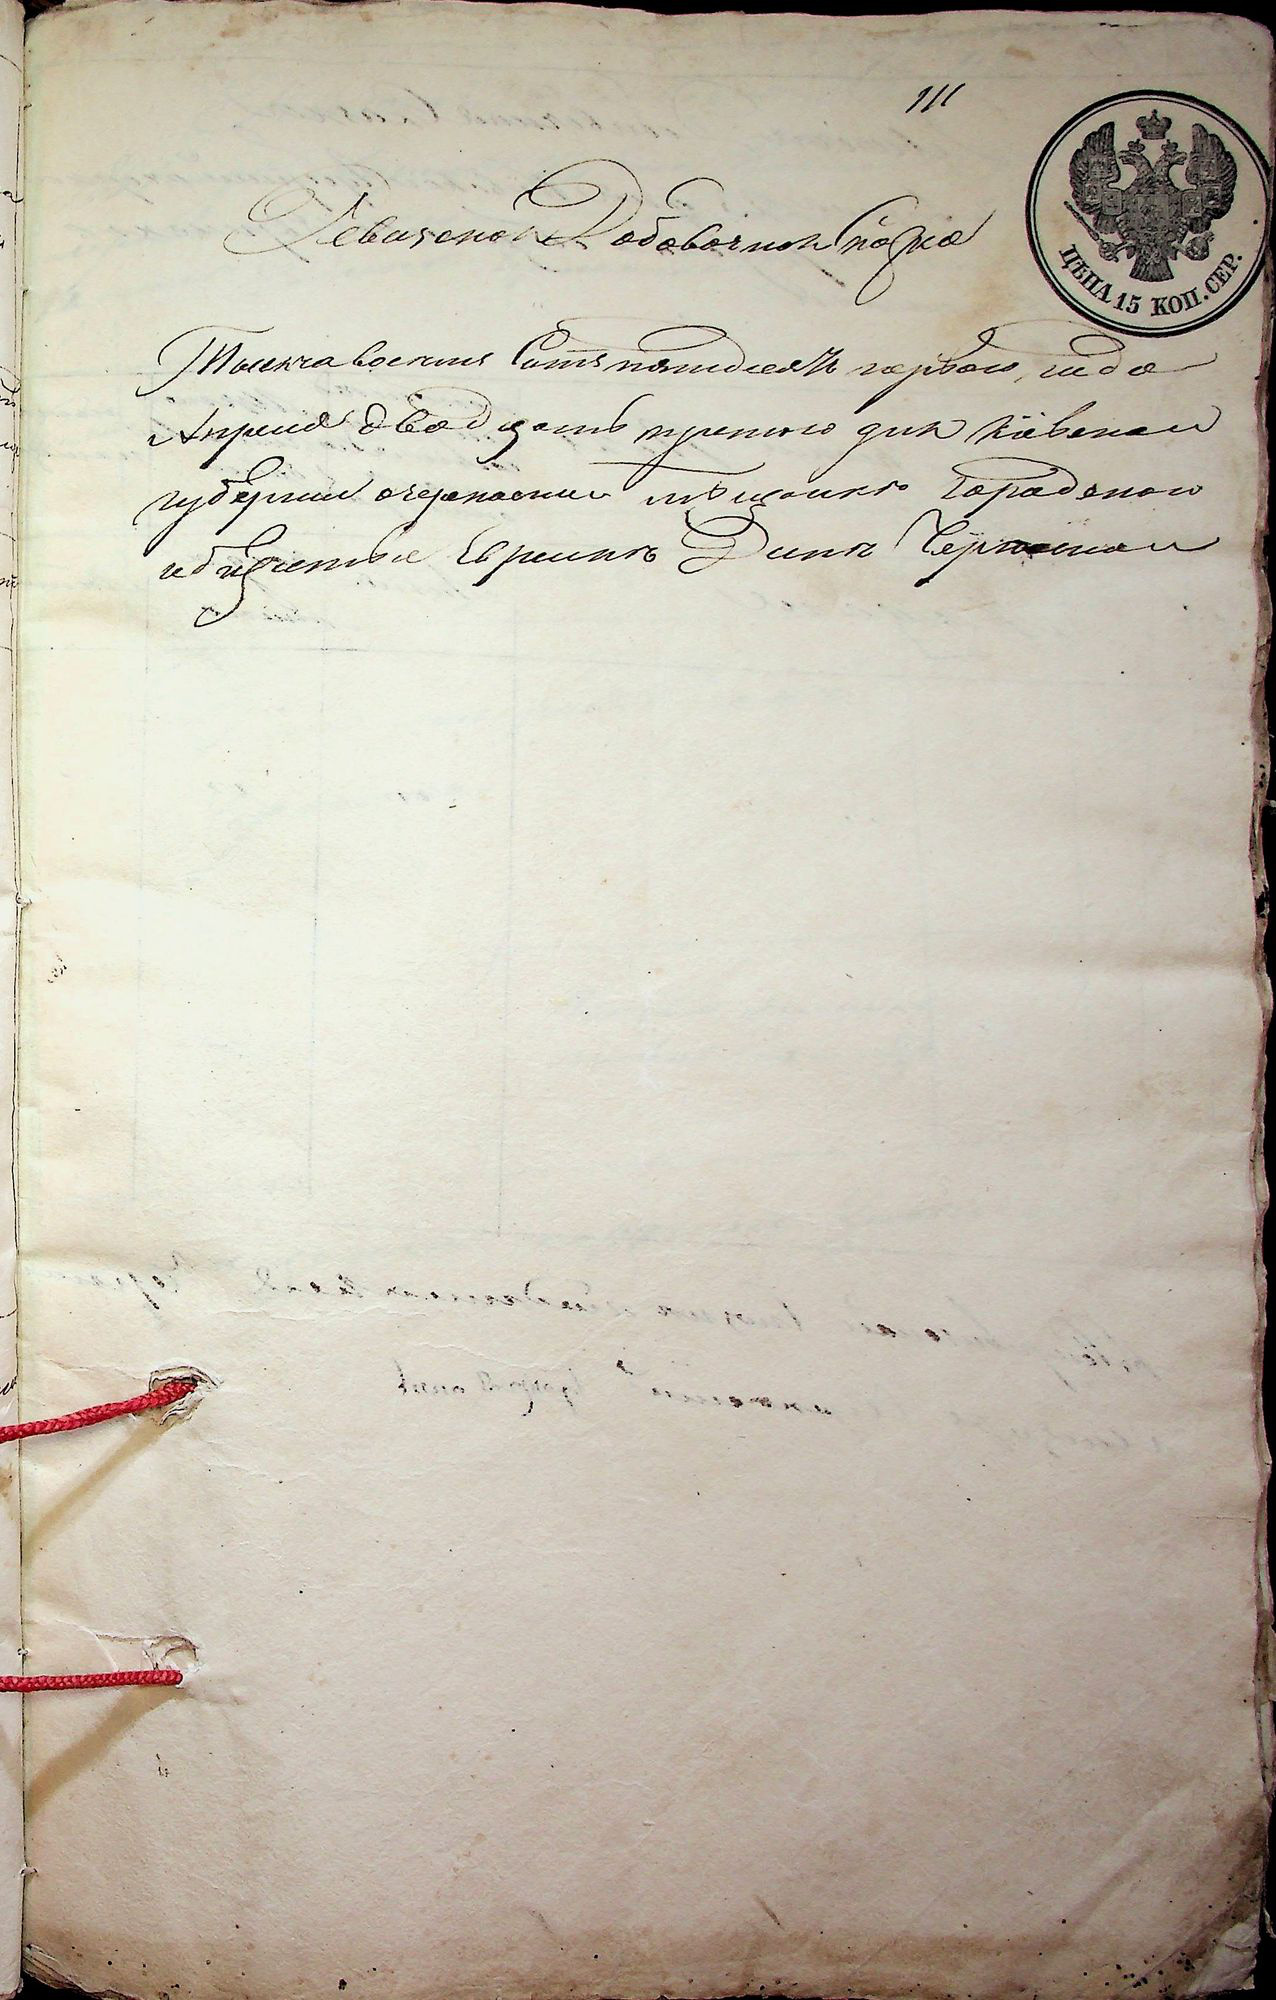 111
ЦѢНА 15 КОП. СЕР.
Ревизская Добавочная Сказка
Тысяча восемь сотъ пятьдесятъ первого года
Апреля двадцать третьего дня Кіевской
губернии о черкаскихъ мѣщанахъ городского
общества Евреяхъ